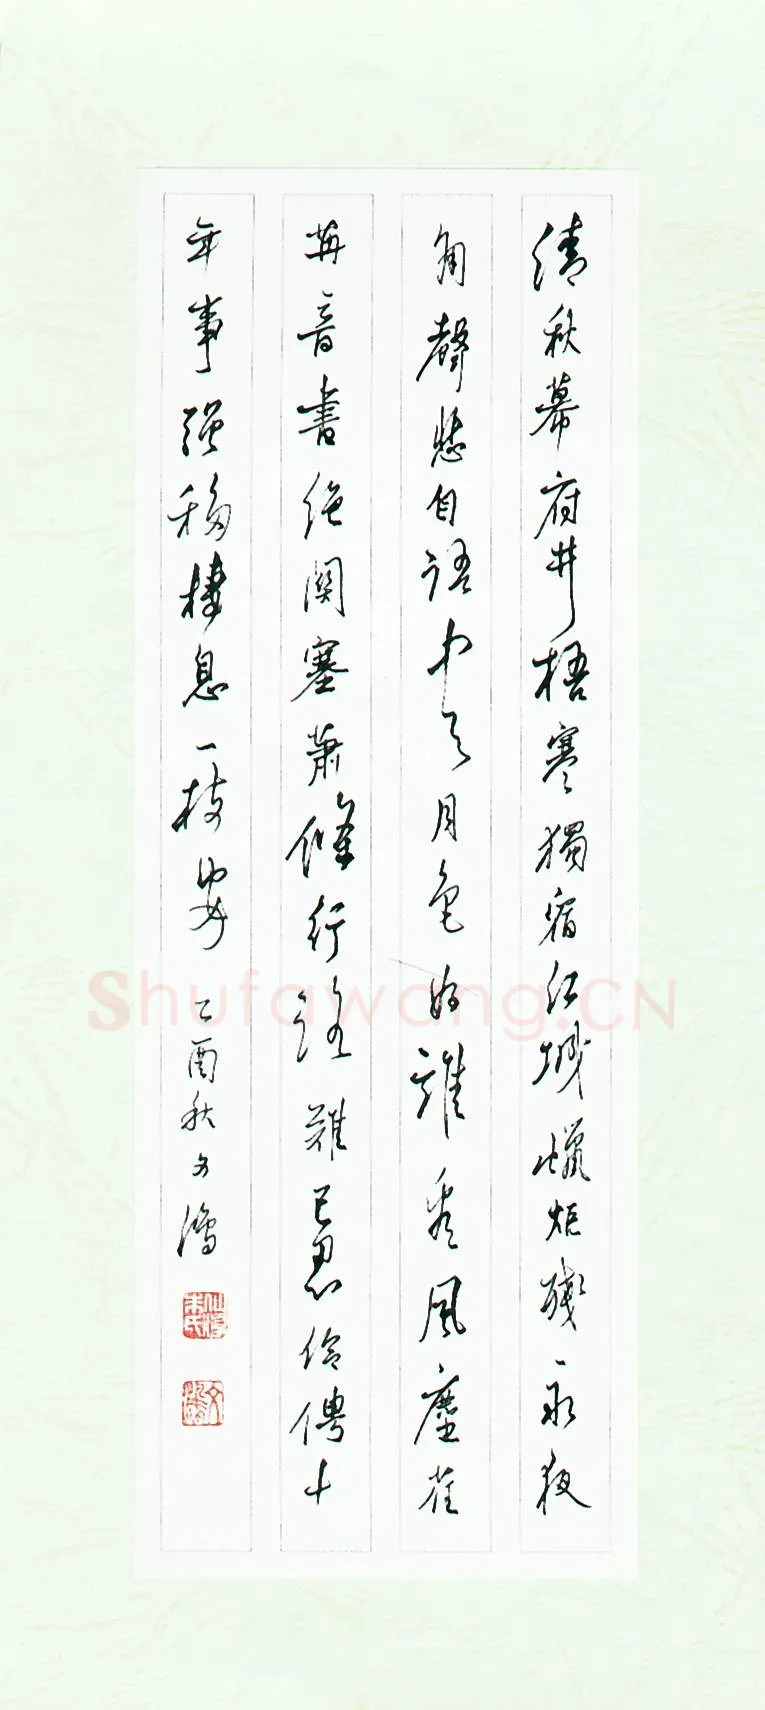 清秋幕府井梧寒獨宿江城蠟炬殘永夜
角聲悲自語中天月色好誰看風塵荏
苒音書絕關塞蕭條行路難已忍伶俜十
年事強移棲息一枝安 乙酉秋文鴻
Shufawang.CN